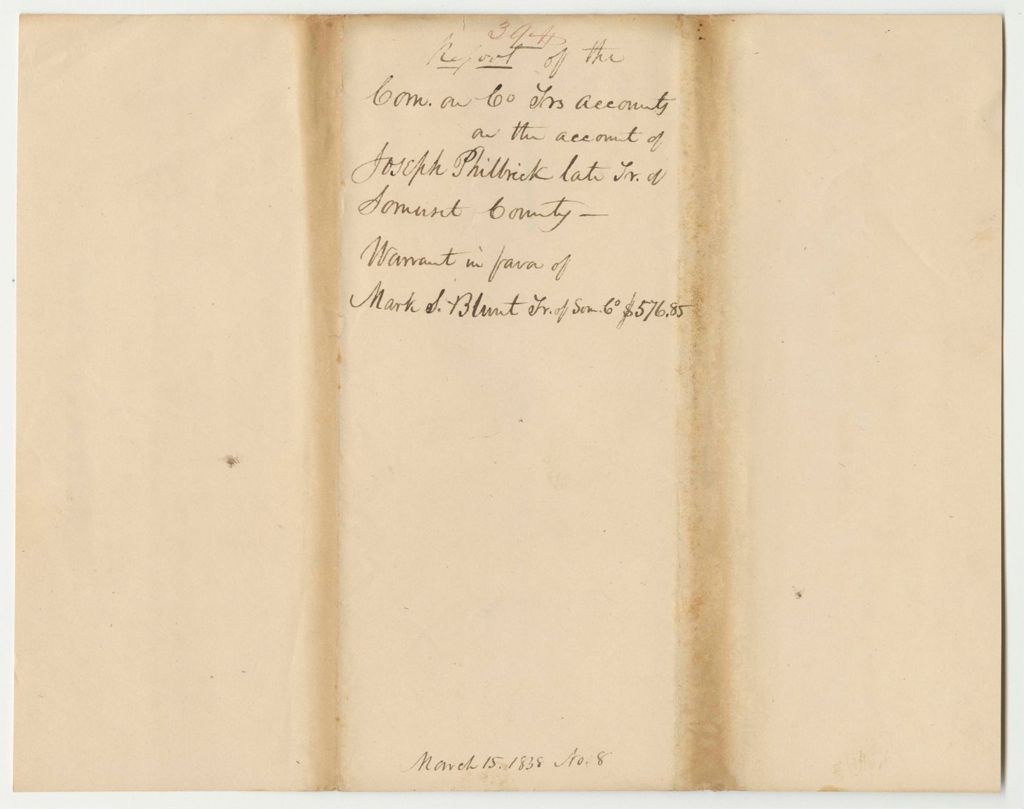 394
Report of the
Com. on Co Trs accounts
on the account of
Joseph Philbrick late Tr. of
Somerset County —
Warrant in favor of
Mark S. Blunt Tr. of Som. Co $576.85
March 15. 1838 No. 8